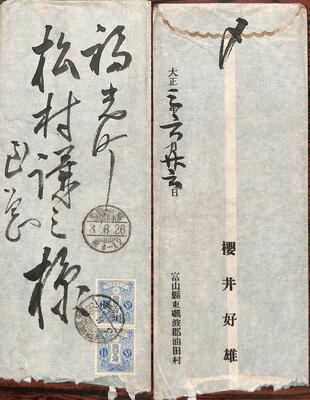 福光町
松村謙三様
3.6.26
〆
大正三年六月廿六日
富山縣東礪波郡油田村
櫻井好雄